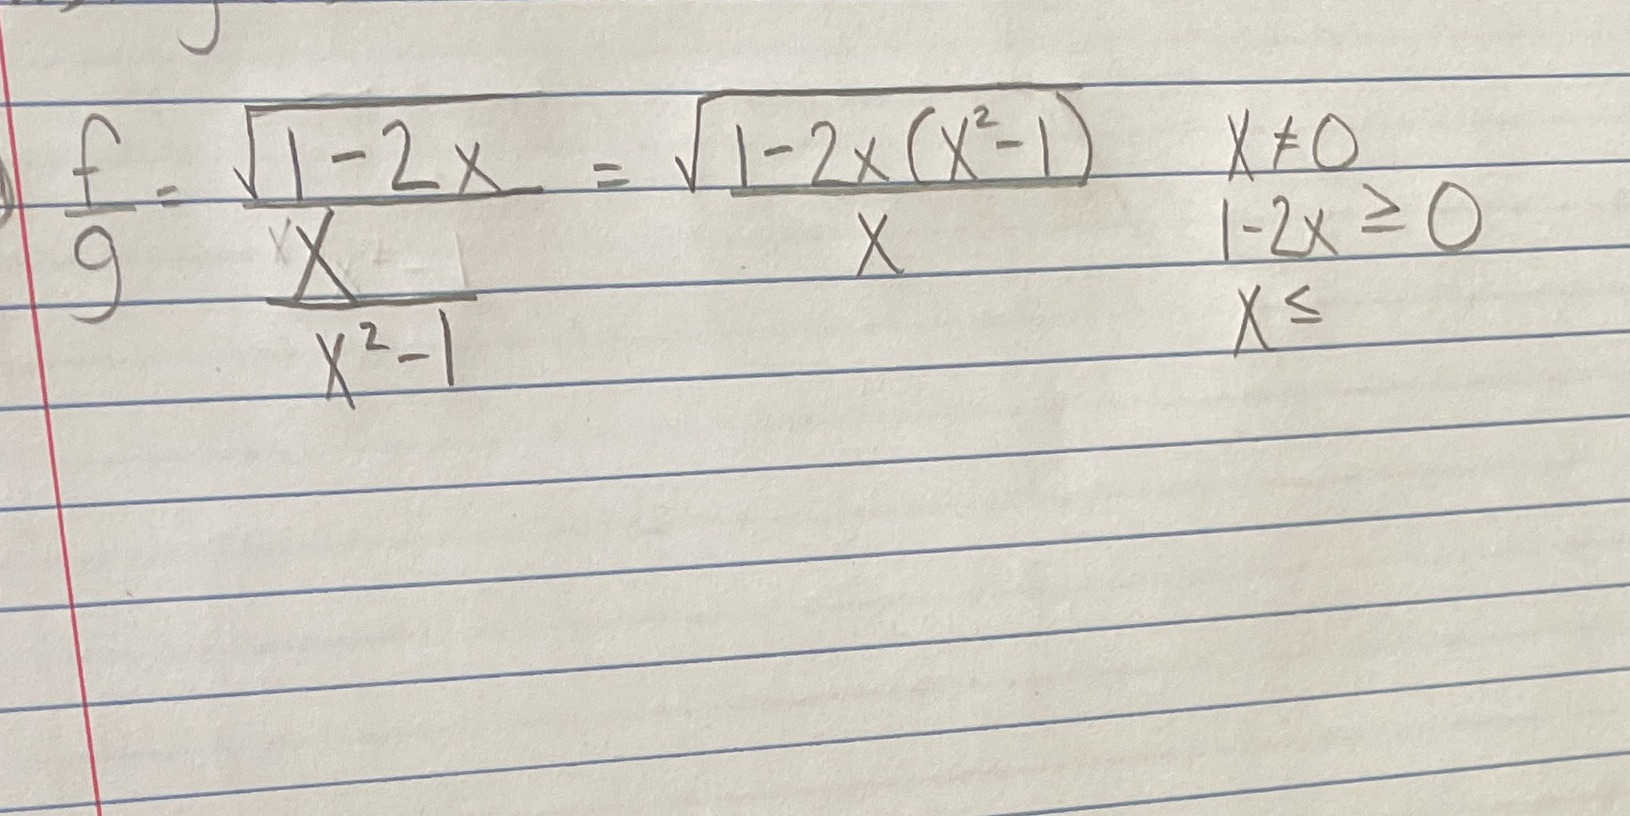 f/g = √(1-2x) / (x / (x²-1)) = √(1-2x(x²-1)) / x
x ≠ 0
1-2x ≥ 0
x ≤